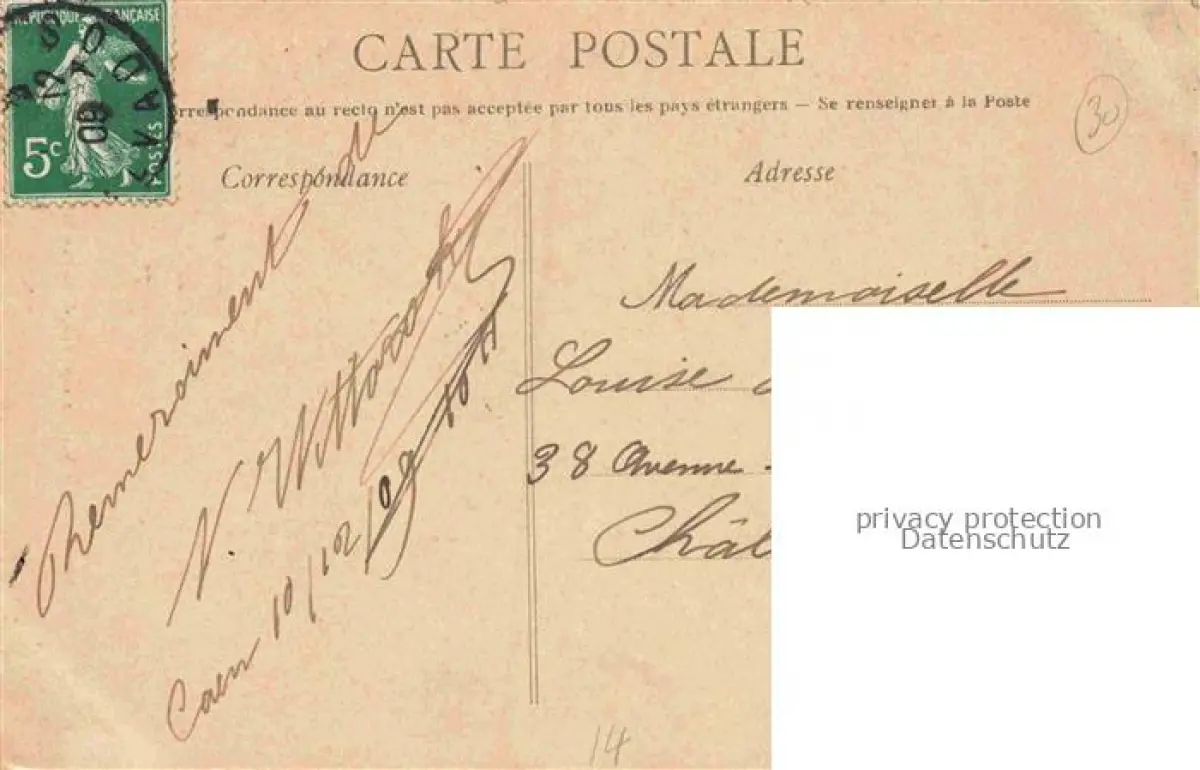 RÉPUBLIQUE FRANÇAISE
5c
POSTES
CARTE POSTALE
rrespondance au recto n'est pas acceptée par tous les pays étrangers — Se renseigner à la Poste
30
Correspondance
Adresse
Remerciment de
V.
Caen 10/12/09
Mademoiselle
Louise
38 Avenue
Chât
14
privacy protection
Datenschutz